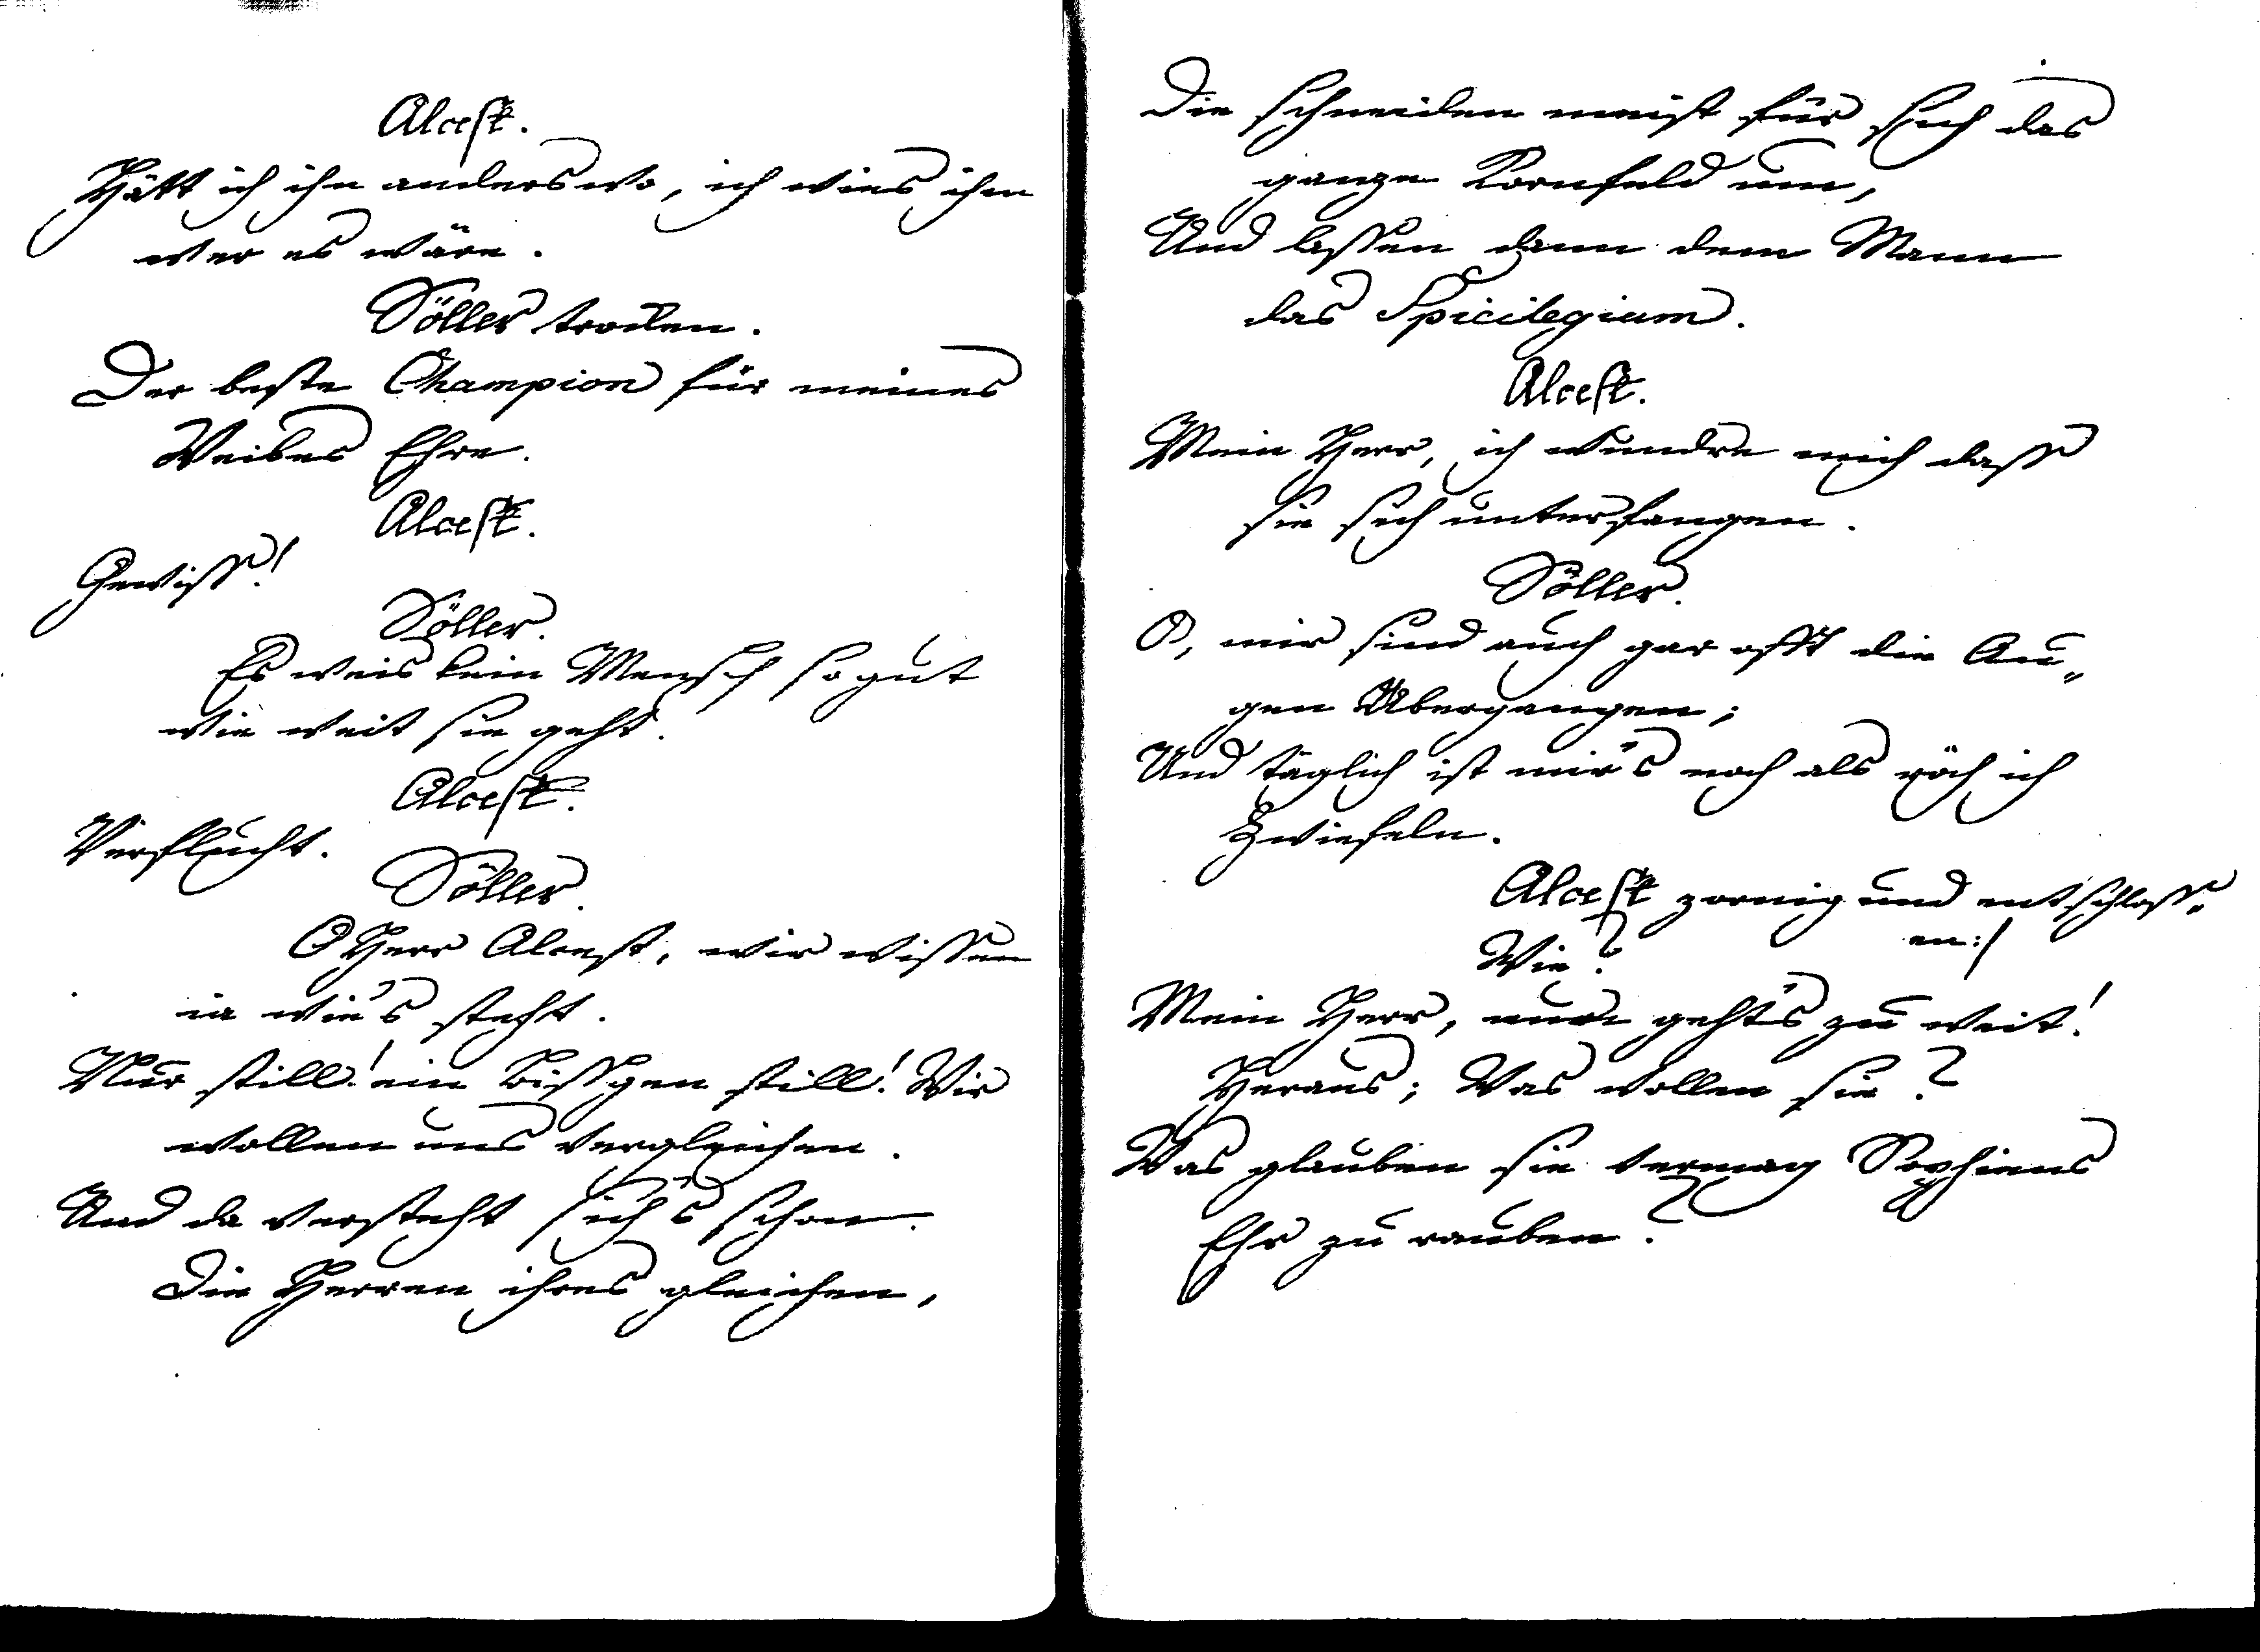 Alcest.
Hätt ich ihn anderswo, ich wies ihm
wer es wäre.
Söller trocken.
Der beste Champion für meines
Weibes Ehre.
Alcest.
Gewiss!
Söller.
Es weis kein Mensch so gut
wie weit sie geht.
Alcest.
Verflucht.
Söller.
O Herr Alcest, wir wissen
ia wie's steht.
Nur still! ein Bissgen still! Wir
wollen uns vergleichen.
Und da versteht sich's schon.
Die Herren ihres gleichen,
Die schneiden meist für sich das
ganze Kornfeld um,
Und lassen dann dem Mann
das Spicilegium.
Alcest.
Mein Herr, ich wundre mich dass
sie sich unterfangen.
Söller.
O, mir sind auch gar offt die Au„
gen Übergangen;
Und täglich ist mir's noch als röch ich
Zwiefeln.
Alcest zornig und entschloss„
en:/
Wie?
Mein Herr, nun geht's zu weit!
Heraus; Was wollen sie?
Was glauben sie vermag Sophiens
Ehr zu rauben?